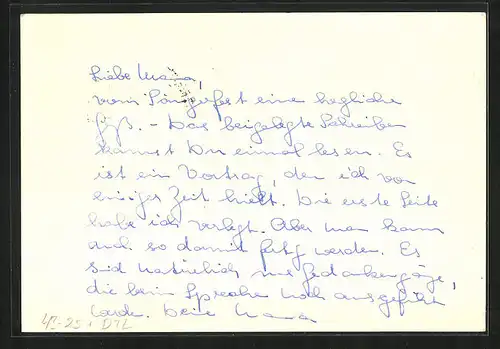 Liebe Mama,
vom Sängerfest eine herzliche
Grüß. - Das beigelegte Schreiben
kannst Du einmal lesen. Es
ist ein Vortrag, den ich vor
einiger Zeit hielt. Die erste Seite
habe ich verlegt. Aber man kann
auch so damit fertig werden. Es
sind natürlich nur Gedankengänge,
die beim Sprechen noch ausgeführt
werden. Deine